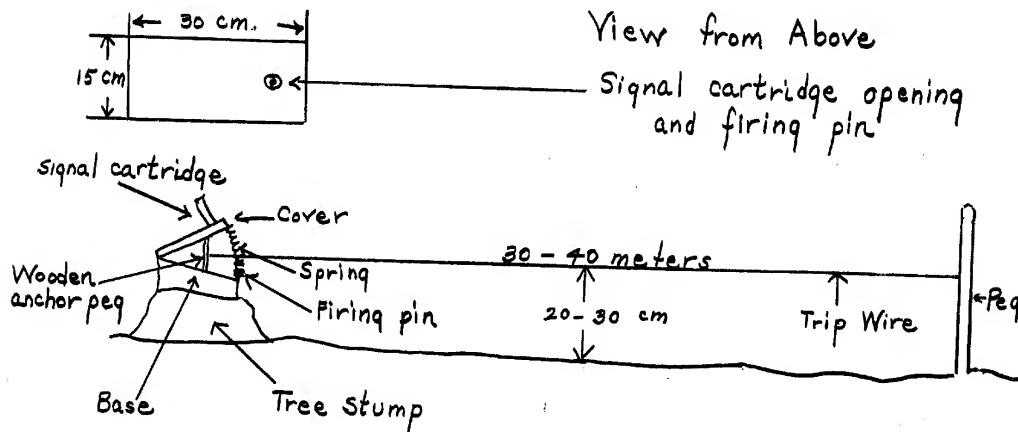 30 cm.
View from Above
15 cm
Signal cartridge opening
and firing pin
Signal cartridge
Cover
30 - 40 meters
Wooden
anchor peg
Spring
Firing pin
20 - 30 cm
Trip Wire
Peg
Base
Tree Stump